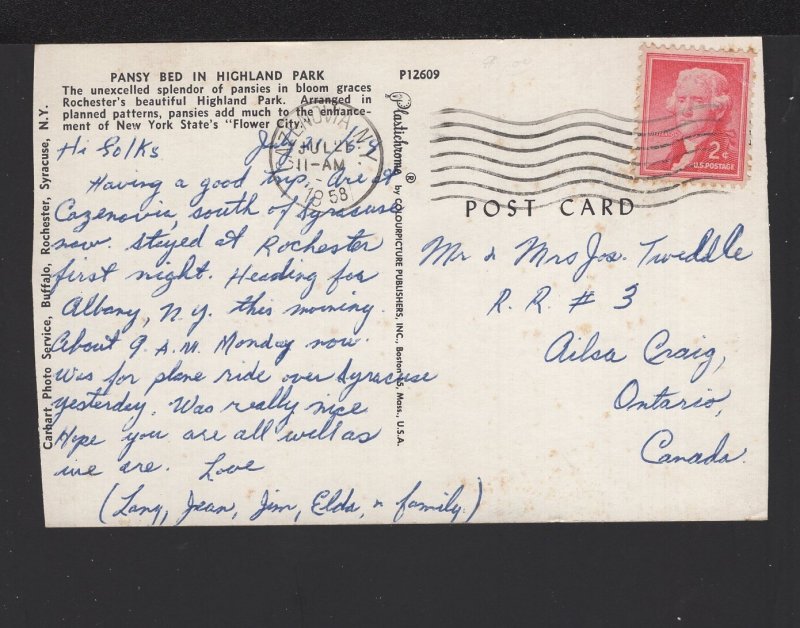 PANSY BED IN HIGHLAND PARK
The unexcelled splendor of pansies in bloom graces
Rochester's beautiful Highland Park. Arranged in
planned patterns, pansies add much to the enhance-
ment of New York State's "Flower City."
Carhart Photo Service, Buffalo, Rochester, Syracuse, N.Y.
Hi Folks
July
Having a good trip. Are at
Cazenovia, south of Syracuse
now. Stayed at Rochester
first night. Heading for
Albany, N.Y. this morning.
About 9 A.M. Monday now.
Was for plane ride over Syracuse
yesterday. Was really nice
Hope you are all well as
we are. Love
(Lang, Jean, Jim, Elda, & family)
CAZENOVIA N.Y.
JUL 28
11-AM
1958
P12609
Plastichrome ® by COLOURPICTURE PUBLISHERS, INC., Boston 15, Mass., U.S.A.
2¢
U.S. POSTAGE
POST CARD
Mr & Mrs Jos. Tweddle
R. R. # 3
Ailsa Craig,
Ontario,
Canada.